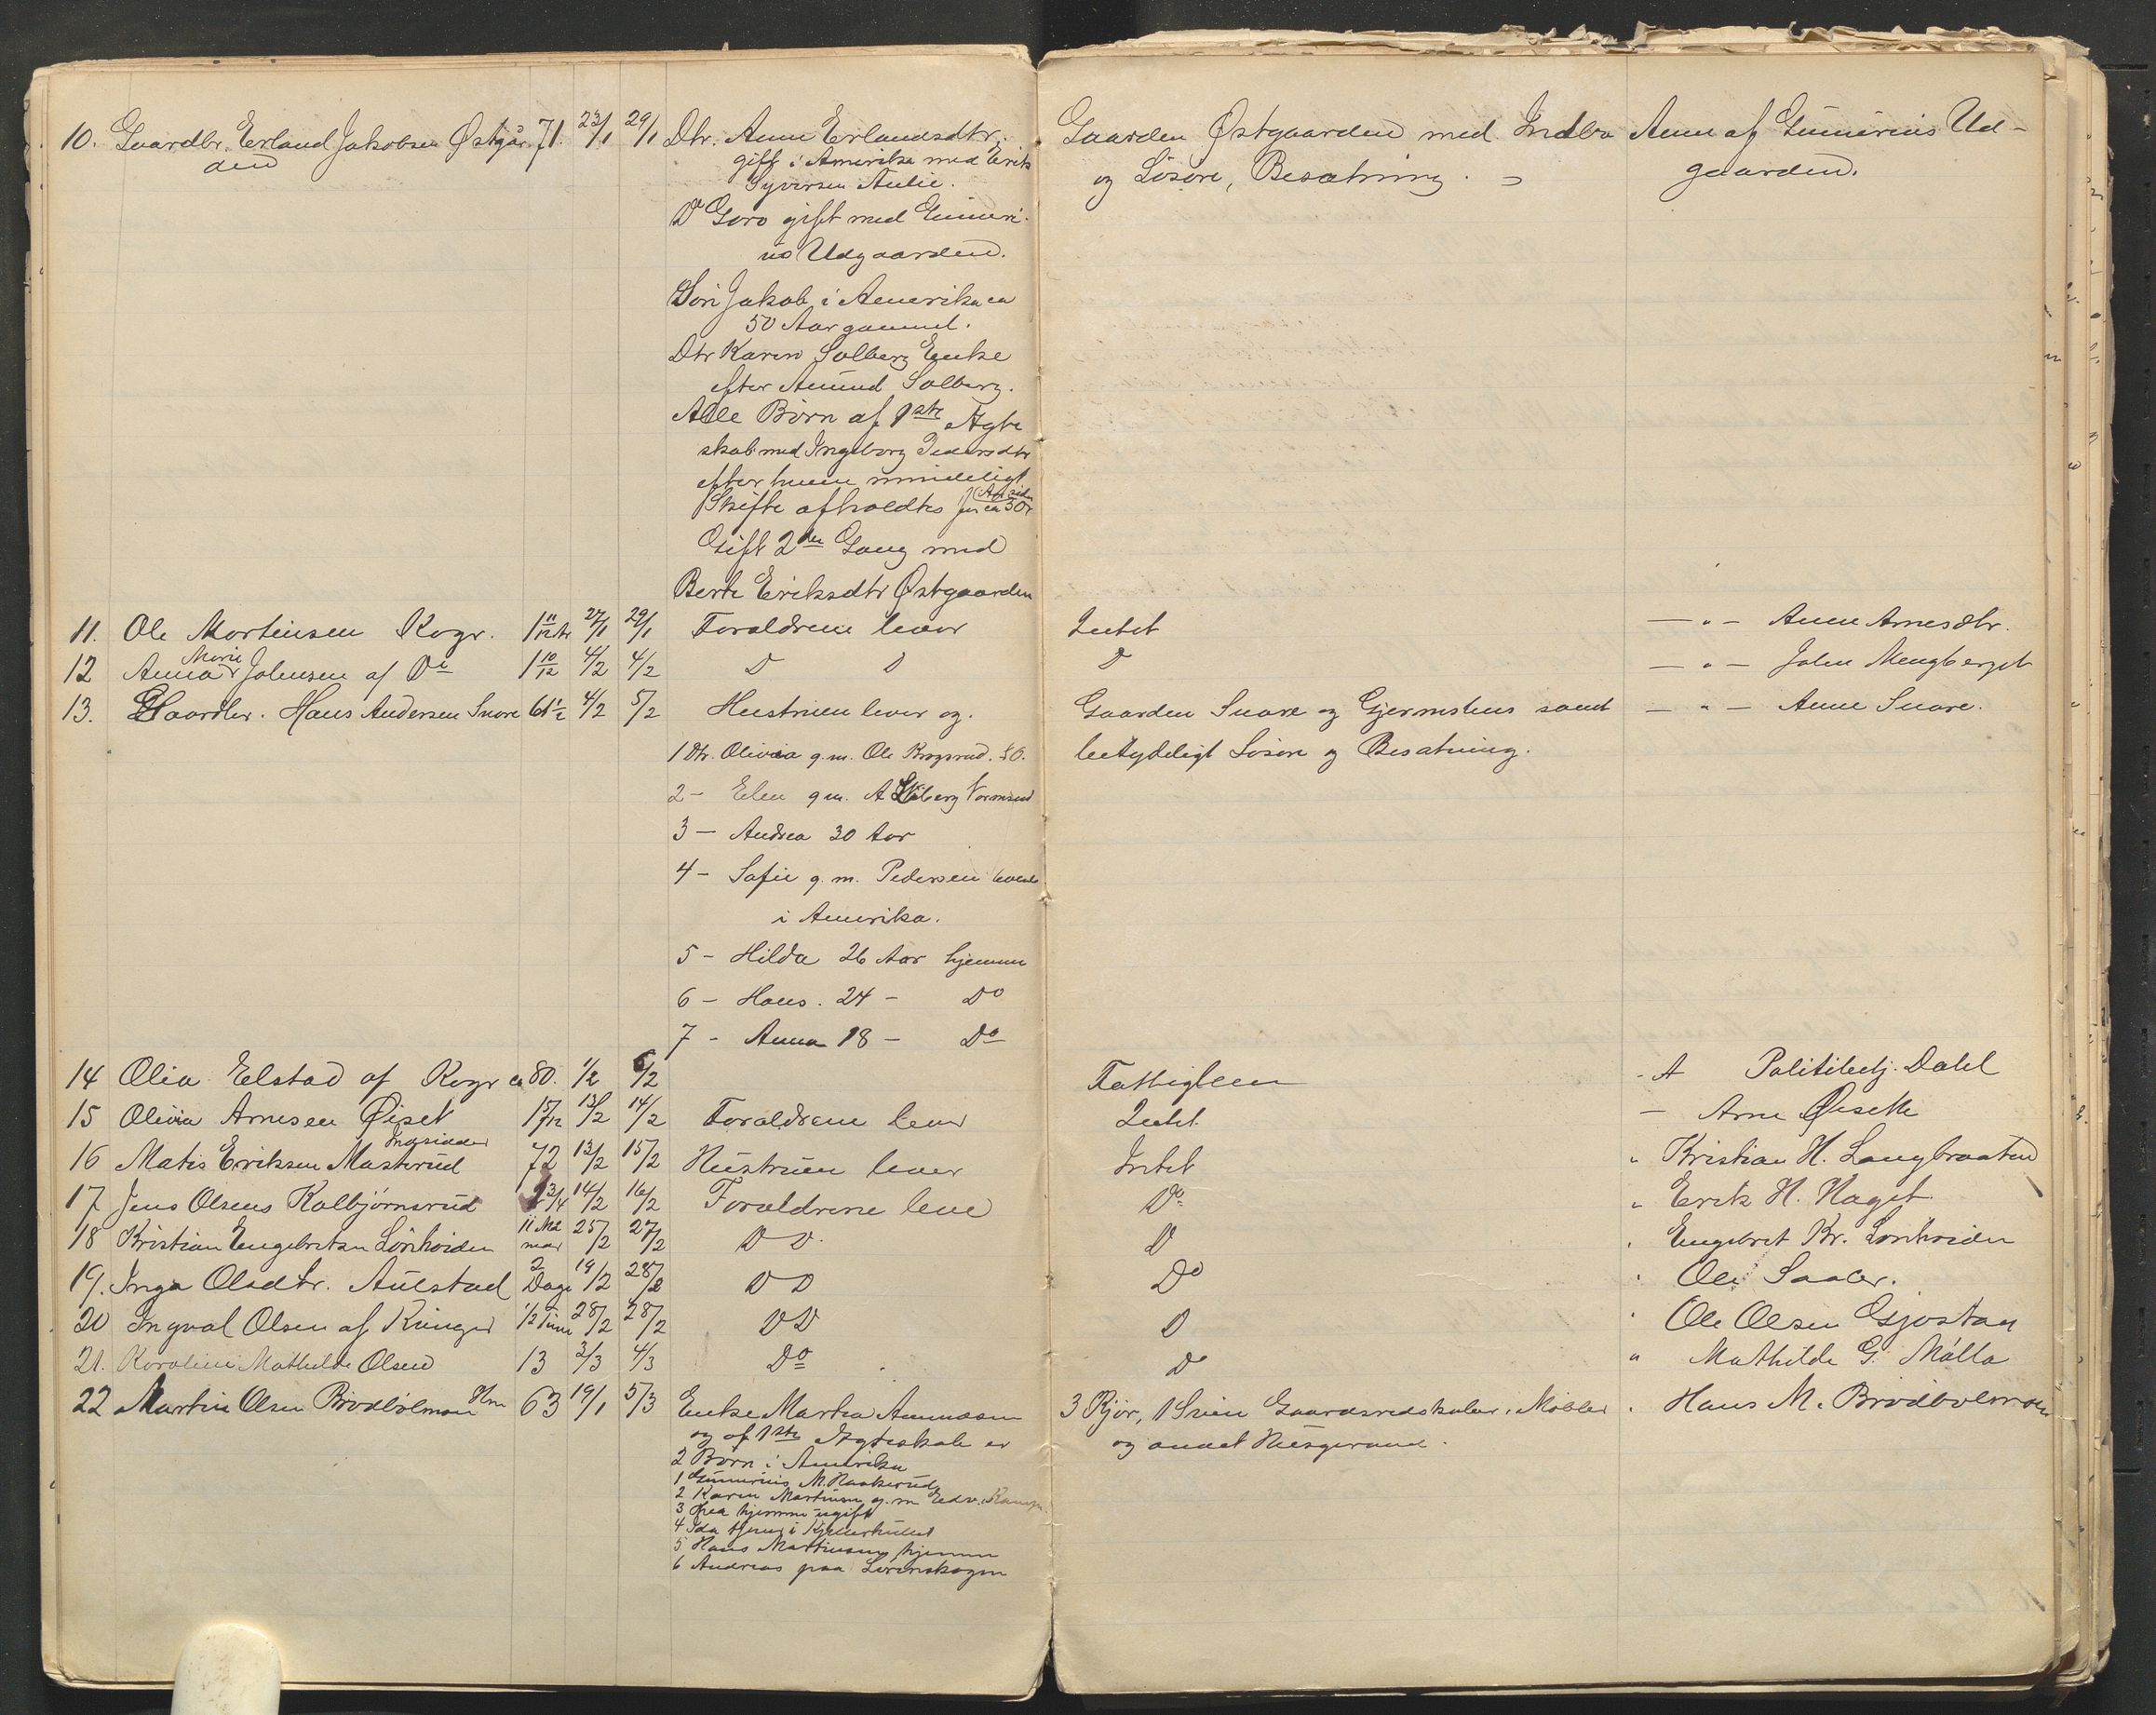 10. Gaardbr. Erland Jakobsen Østgår- 71. 23/1 29/1 Dtr. Anne Erlandsdtr. Gaarden Østgaarden med Indbo Anm af Gunerius Ud-
den gift i Amerika med Erik og Løsøre, Besætning. gaarden.
Syversen Aulie.
Do Goro gift med Guneri-
us Udgaarden.
Søn Jakob i Amerika ca
50 Aar gammel.
Dtr Karen Solberg Enke
efter Amund Solberg.
Alle Børn af 1ste Ægte
skab med Ingeborg Pedersdtr
efter hvem mindeligt
Skifte afholdtes for ca 30
Gift 2den Gang med
Berte Eriksdtr Østgaarden
11. Ole Mortensen Kogr. 1 11/12 27/1 29/1 Forældrene lever Intet — " — Anne Arnesdtr.
12 Anna Marie Johnsen af Do 1 10/12 4/2 4/2 D D D — " — John Mengberget
13. Gaardbr. Hans Andersen Snare 61 1/2 4/2 5/2 Hustruen lever og. Gaarden Snare og Gjermshus samt — " — Anne Snare.
1 Dtr. Olivia g.m. Ole Krogsrud. S.O. betydeligt Løsøre og Besætning.
2 - Elen gm. A Skiberg Vormsund
3 — Andrea 30 Aar
4 - Sofie g.m. Pedersen
i Amerika.
5 - Hilda 26 Aar hjemme
6 - Hans. 24 - Do
7 - Anna 18 - Do
14 Olia Elstad af Kogr ca 80. 1/2 6/2 Fattiglem - A Politibetj. Dahl
15 Olivia Arnesen Øiset 1 5/12 13/2 14/2 Forældrene lever Intet — Arne Øiseth
16 Matis Eriksen Masterud Indsidder 72 13/2 15/2 Hustruen lever Intet " Kristian H. Langbraaten
17 Jens Olsens Kolbjørnsrud 2 3/4 14/2 16/2 Forældrene leve Do " Erik H. Haget
18 Kristian Engebretsen Lønhoiden 11 Maa neder 25/2 27/2 D D. D " Engebret Kr. Lønhoiden
19. Inga Olsdtr. Aulstad 2 Dage 19/2 28/2 D D Do " Ole Saaler.
20 Ingval Olsen af Kringer 1/2 Time 28/2 28/2 D D D " Ole Olsen Gjøstan
21. Karoline Mathilde Olsen 13 2/3 4/3 Do Do " Mathilde G. Mølla
22 Martin Olsen Brødbølmoen Hm 63 19/1 5/3 Enke Martea Amundsen 3 Kjør, 1 Sviin Gaardsredskaber, Møbler " Hans M. Brødbølmoen
og af 1ste Ægteskab er og andet Husgeraad.
2 Børn i Amerika
1 Gunerius M. Haakerud
2 Karen Martinsen g.m Edv.
3 Thea hjemme ugift
4 Ida tjener i Kjellerholdet
5 Hans Martinsen hjemme
6 Andreas paa Lørenskogen